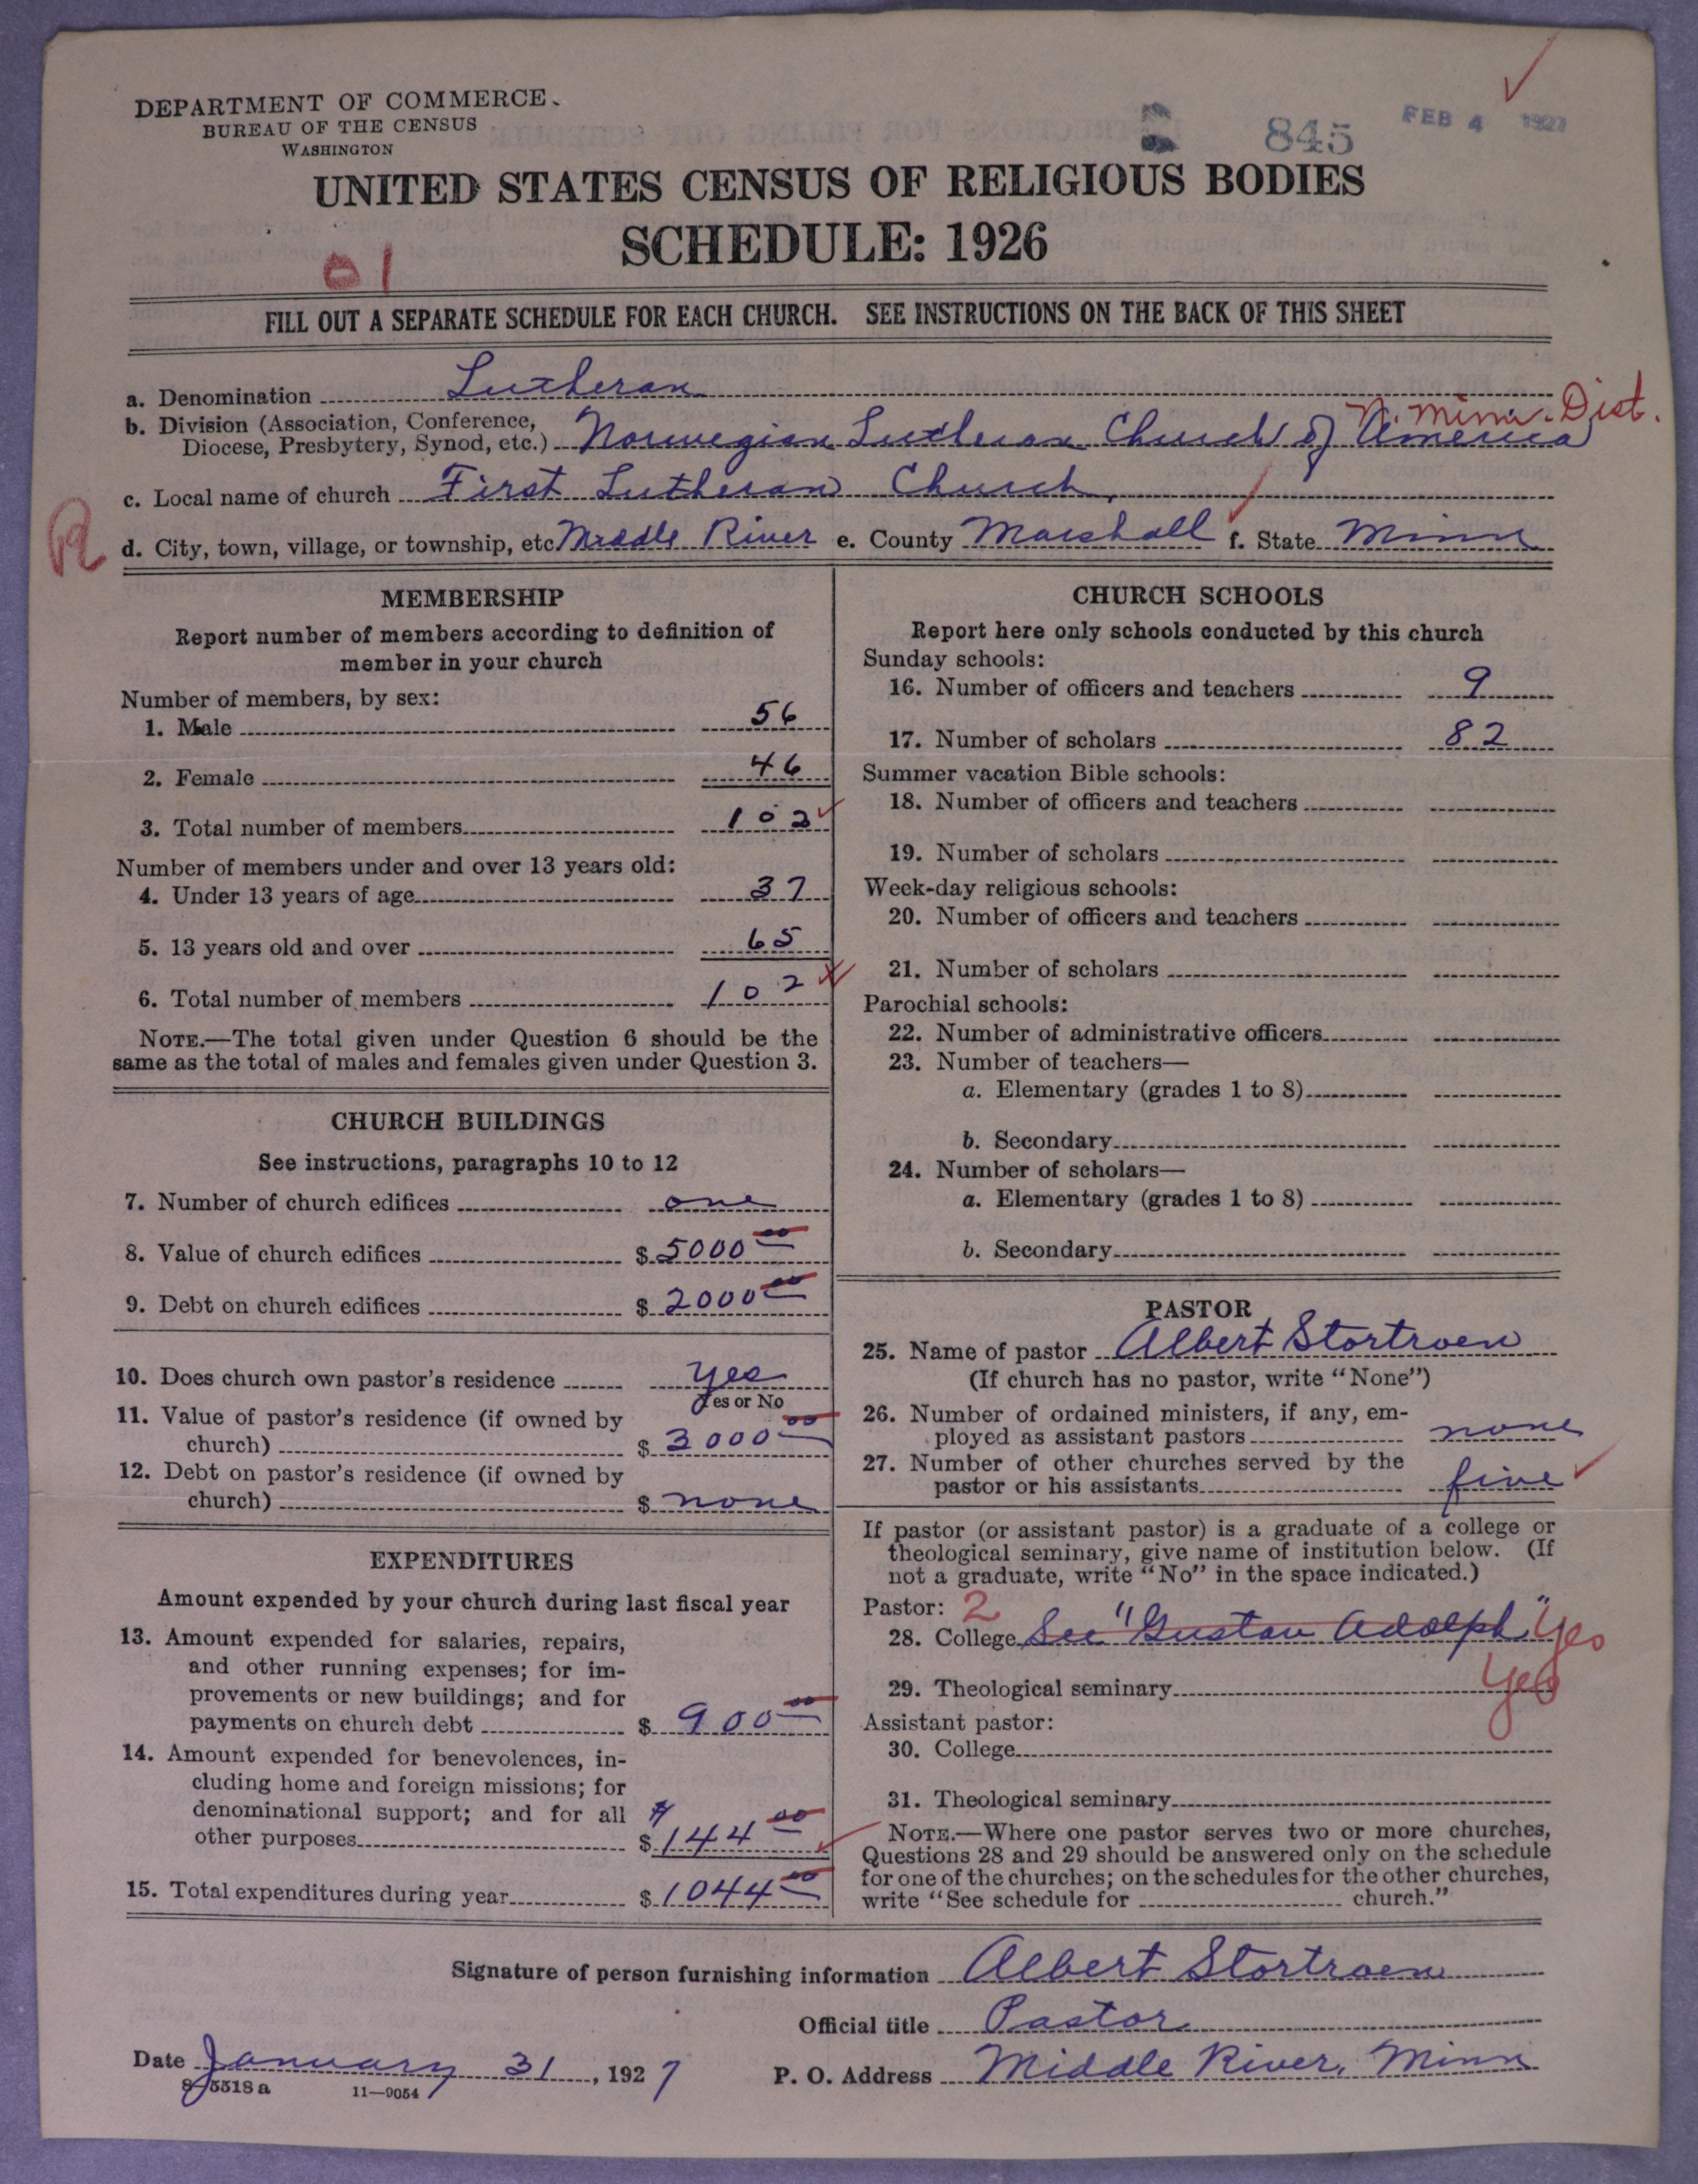 DEPARTMENT OF COMMERCE
BUREAU OF THE CENSUS
WASHINGTON
845
FEB 4 1927
UNITED STATES CENSUS OF RELIGIOUS BODIES
SCHEDULE: 1926
01
FILL OUT A SEPARATE SCHEDULE FOR EACH CHURCH. SEE INSTRUCTIONS ON THE BACK OF THIS SHEET
a. Denomination Lutheran
N. Minn. Dist.
b. Division (Association, Conference,
Diocese, Presbytery, Synod, etc.) Norwegian Lutheran Church of America
c. Local name of church First Lutheran Church
R
d. City, town, village, or township, etc. Middle River e. County Marshall f. State Minn
MEMBERSHIP
Report number of members according to definition of
member in your church
Number of members, by sex:
1. Male 56
2. Female 46
3. Total number of members 102
Number of members under and over 13 years old:
4. Under 13 years of age 37
5. 13 years old and over 65
6. Total number of members 102
NOTE.—The total given under Question 6 should be the
same as the total of males and females given under Question 3.
CHURCH BUILDINGS
See instructions, paragraphs 10 to 12
7. Number of church edifices one
8. Value of church edifices $5000 00
9. Debt on church edifices $2000 00
10. Does church own pastor's residence yes
Yes or No
11. Value of pastor's residence (if owned by
church) $3000 00
12. Debt on pastor's residence (if owned by
church) $none
EXPENDITURES
Amount expended by your church during last fiscal year
13. Amount expended for salaries, repairs,
and other running expenses; for im-
provements or new buildings; and for
payments on church debt $900 00
14. Amount expended for benevolences, in-
cluding home and foreign missions; for
denominational support; and for all
other purposes $144 00
15. Total expenditures during year $1044 00
CHURCH SCHOOLS
Report here only schools conducted by this church
Sunday schools:
16. Number of officers and teachers 9
17. Number of scholars 82
Summer vacation Bible schools:
18. Number of officers and teachers
19. Number of scholars
Week-day religious schools:
20. Number of officers and teachers
21. Number of scholars
Parochial schools:
22. Number of administrative officers
23. Number of teachers—
a. Elementary (grades 1 to 8)
b. Secondary
24. Number of scholars—
a. Elementary (grades 1 to 8)
b. Secondary
PASTOR
25. Name of pastor Albert Stortroen
(If church has no pastor, write "None")
26. Number of ordained ministers, if any, em-
ployed as assistant pastors none
27. Number of other churches served by the
pastor or his assistants five
If pastor (or assistant pastor) is a graduate of a college or
theological seminary, give name of institution below. (If
not a graduate, write "No" in the space indicated.)
Pastor: 2
28. College See "Gustav Adolph" Yes
29. Theological seminary Yes
Assistant pastor:
30. College
31. Theological seminary
NOTE.—Where one pastor serves two or more churches,
Questions 28 and 29 should be answered only on the schedule
for one of the churches; on the schedules for the other churches,
write "See schedule for church."
Signature of person furnishing information Albert Stortroen
Official title Pastor
Date January 31, 1927
P. O. Address Middle River, Minn
8-5518 a 11—9054